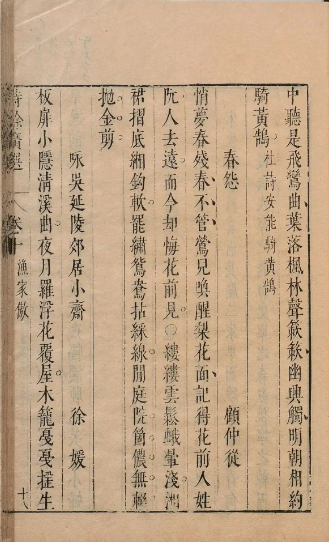 中聽是飛鸞曲葉落楓林聲簌簌幽興觸明朝相約
騎黃鵠 杜詩安能騎黃鵠
春怨 顧仲從
悄夢春殘春不管鶯兒喚醒梨花面記得花前人姓
阮人去遠而今却悔花前見〇縷縷雲鬆蛾暈淺湘
裙摺底緗鈎軟罷繡鴛鴦拈綵線閒庭院箇儂無
拋金剪
咏吳延陵郊居小齋 徐媛
板扉小隱清溪曲夜月羅浮花覆屋木籠戞戞 生
詩餘廣選 卷十 漁家傲 十